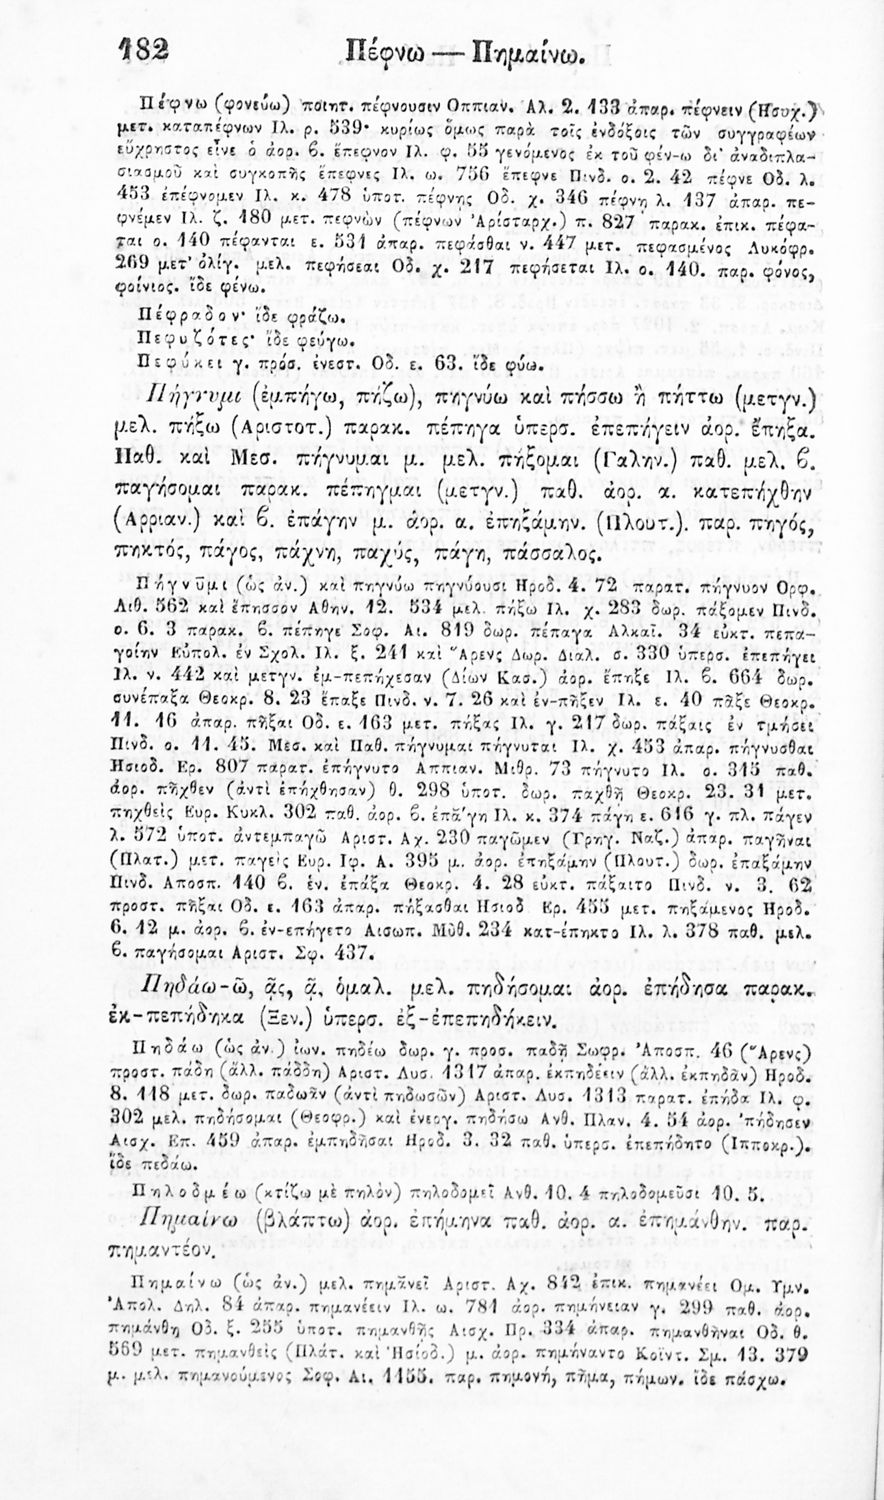 182 Πέφνω — Πημαίνω.
Πέφνω (φονεύω) ποιητ. πέφνουσιν Οππιαν. Αλ. 2. 133 ἀπαρ. πέφνειν (Ησυχ.)
μετ. καταπέφνων Ιλ. ρ. 539· κυρίως ὅμως παρὰ τοῖς ἐνδόξοις τῶν συγγραφέων
εὔχρηστος εἶνε ὁ ἀορ. β. ἔπεφνον Ιλ. φ. 55 γενόμενος ἐκ τοῦ φέν-ω δι' ἀναδιπλα-
σιασμοῦ καὶ συγκοπῆς ἔπεφνες Ιλ. ω. 756 ἔπεφνε Πινδ. ο. 2. 42 πέφνε Οδ. λ.
453 ἐπέφνομεν Ιλ. κ. 478 ὑποτ. πέφνῃς Οδ. χ. 346 πέφνῃ λ. 137 ἀπαρ. πε-
φνέμεν Ιλ. ζ. 180 μετ. πεφνὼν (πέφνων Ἀρίσταρχ.) π. 827 παρακ. ἐπικ. πέφα-
ται ο. 140 πέφανται ε. 531 ἀπαρ. πεφάσθαι ν. 447 μετ. πεφασμένος Λυκόφρ.
269 μετ' ὀλίγ. μελ. πεφήσεαι Οδ. χ. 217 πεφήσεται Ιλ. ο. 140. παρ. φόνος,
φοίνιος. ἴδε φένω.
Πέφραδον· ἴδε φράζω.
Πεφυζότες· ἴδε φεύγω.
Πεφύκει γ. πρόσ. ἐνεστ. Οδ. ε. 63. ἴδε φύω.
Πήγνυμι (ἐμπήγω, πήζω), πηγνύω καὶ πήσσω ἢ πήττω (μετγν.)
μελ. πήξω (Αριστοτ.) παρακ. πέπηγα ὑπερσ. ἐπεπήγειν ἀορ. ἔπηξα.
Παθ. καὶ Μεσ. πήγνυμαι μ. μελ. πήξομαι (Γαλην.) παθ. μελ. β.
παγήσομαι παρακ. πέπηγμαι (μετγν.) παθ. ἀορ. α. κατεπήχθην
(Αρριαν.) καὶ β. ἐπάγην μ. ἀορ. α. ἐπηξάμην. (Πλουτ.). παρ. πηγός,
πηκτός, πάγος, πάχνη, παχύς, πάγη, πάσσαλος.
Πήγνῡμι (ὡς ἀν.) καὶ πηγνύω πηγνύουσι Ηροδ. 4. 72 παρατ. πήγνυον Ορφ.
Λιθ. 562 καὶ ἔπησσον Αθην. 12. 534 μελ. πήξω Ιλ. χ. 283 δωρ. πάξομεν Πινδ.
ο. 6. 3 παρακ. β. πέπηγε Σοφ. Αι. 819 δωρ. πέπαγα Αλκαῖ. 34 εὐκτ. πεπα-
γοίην Εὔπολ. ἐν Σχολ. Ιλ. ξ. 241 καὶ Ἄρενς Δωρ. Διαλ. σ. 330 ὑπερσ. ἐπεπήγει
Ιλ. ν. 442 καὶ μετγν. ἐμ-πεπήχεσαν (Δίων Κασ.) ἀορ. ἔπηξε Ιλ. β. 664 δωρ.
συνέπαξα Θεοκρ. 8. 23 ἔπαξε Πινδ. ν. 7. 26 καὶ ἐν-πῆξεν Ιλ. ε. 40 πᾶξε Θεοκρ.
11. 16 ἀπαρ. πῆξαι Οδ. ε. 163 μετ. πήξας Ιλ. γ. 217 δωρ. πάξαις ἐν τμήσει
Πινδ. ο. 11. 45. Μεσ. καὶ Παθ. πήγνυμαι πήγνυται Ιλ. χ. 453 ἀπαρ. πήγνυσθαι
Ησιοδ. Ερ. 807 παρατ. ἐπήγνυτο Αππιαν. Μιθρ. 73 πήγνυτο Ιλ. ο. 315 παθ.
ἀορ. πῆχθεν (ἀντὶ ἐπήχθησαν) θ. 298 ὑποτ. δωρ. παχθῇ Θεοκρ. 23. 31 μετ.
πηχθεὶς Ευρ. Κυκλ. 302 παθ. ἀορ. β. ἐπᾰ́γη Ιλ. κ. 374 πάγη ε. 616 γ. πλ. πάγεν
λ. 572 ὑποτ. ἀντεμπαγῶ Αριστ. Αχ. 230 παγῶμεν (Γρηγ. Ναζ.) ἀπαρ. παγῆναι
(Πλατ.) μετ. παγεὶς Ευρ. Ιφ. Α. 395 μ. ἀορ. ἐπηξάμην (Πλουτ.) δωρ. ἐπαξάμην
Πινδ. Αποσπ. 140 β. ἑν. ἐπάξα Θεοκρ. 4. 28 εὐκτ. πάξαιτο Πινδ. ν. 3. 62
προστ. πῆξαι Οδ. ε. 163 ἀπαρ. πήξασθαι Ησιοδ Ερ. 455 μετ. πηξάμενος Ηροδ.
6. 12 μ. ἀορ. β. ἐν-επήγετο Αισωπ. Μῦθ. 234 κατ-έπηκτο Ιλ. λ. 378 παθ. μελ.
β. παγήσομαι Αριστ. Σφ. 437.
Πηδάω-ῶ, ᾷς, ᾷ, ὁμαλ. μελ. πηδήσομαι ἀορ. ἐπήδησα παρακ.
ἐκ-πεπήδηκα (Ξεν.) ὑπερσ. ἐξ-επεπηδήκειν.
Πηδάω (ὡς ἀν.) ἰων. πηδέω δωρ. γ. προσ. παδῇ Σωφρ. Ἀποσπ. 46 (Ἄρενς)
προστ. πάδη (ἄλλ. πάδδη) Αριστ. Λυσ. 1317 ἀπαρ. ἐκπηδέειν (ἄλλ. ἐκπηδᾶν) Ηροδ.
8. 118 μετ. δωρ. παδωᾶν (ἀντὶ πηδωσῶν) Αριστ. Λυσ. 1313 παρατ. ἐπήδα Ιλ. φ.
302 μελ. πηδήσομαι (Θεοφρ.) καὶ ἐνεργ. πηδήσω Ανθ. Πλαν. 4. 54 ἀορ. 'πήδησεν
Αισχ. Επ. 459 ἀπαρ. ἐμπηδῆσαι Ηροδ. 3. 32 παθ. ὑπερσ. ἐπεπήδητο (Ιπποκρ.).
ἴδε πεδάω.
Πηλοδμέω (κτίζω μὲ πηλόν) πηλοδομεῖ Ανθ. 10. 4 πηλοδομεῦσι 10. 5.
Πημαίνω (βλάπτω) ἀορ. ἐπήμηνα παθ. ἀορ. α. ἐπημάνθην. παρ.
πημαντέον.
Πημαίνω (ὡς ἀν.) μελ. πημᾰνεῖ Αριστ. Αχ. 842 ἐπικ. πημανέει Ομ. Υμν.
Ἀπολ. Δηλ. 84 ἀπαρ. πημανέειν Ιλ. ω. 781 ἀορ. πημήνειαν γ. 299 παθ. ἀορ.
πημάνθη Οδ. ξ. 255 ὑποτ. πημανθῇς Αισχ. Πρ. 334 ἀπαρ. πημανθῆναι Οδ. θ.
569 μετ. πημανθεὶς (Πλάτ. καὶ Ἡσίοδ.) μ. ἀορ. πημήναντο Κοϊντ. Σμ. 13. 379
μ. μελ. πημανούμενος Σοφ. Αι. 1155. παρ. πημονή, πῆμα, πήμων. ἴδε πάσχω.